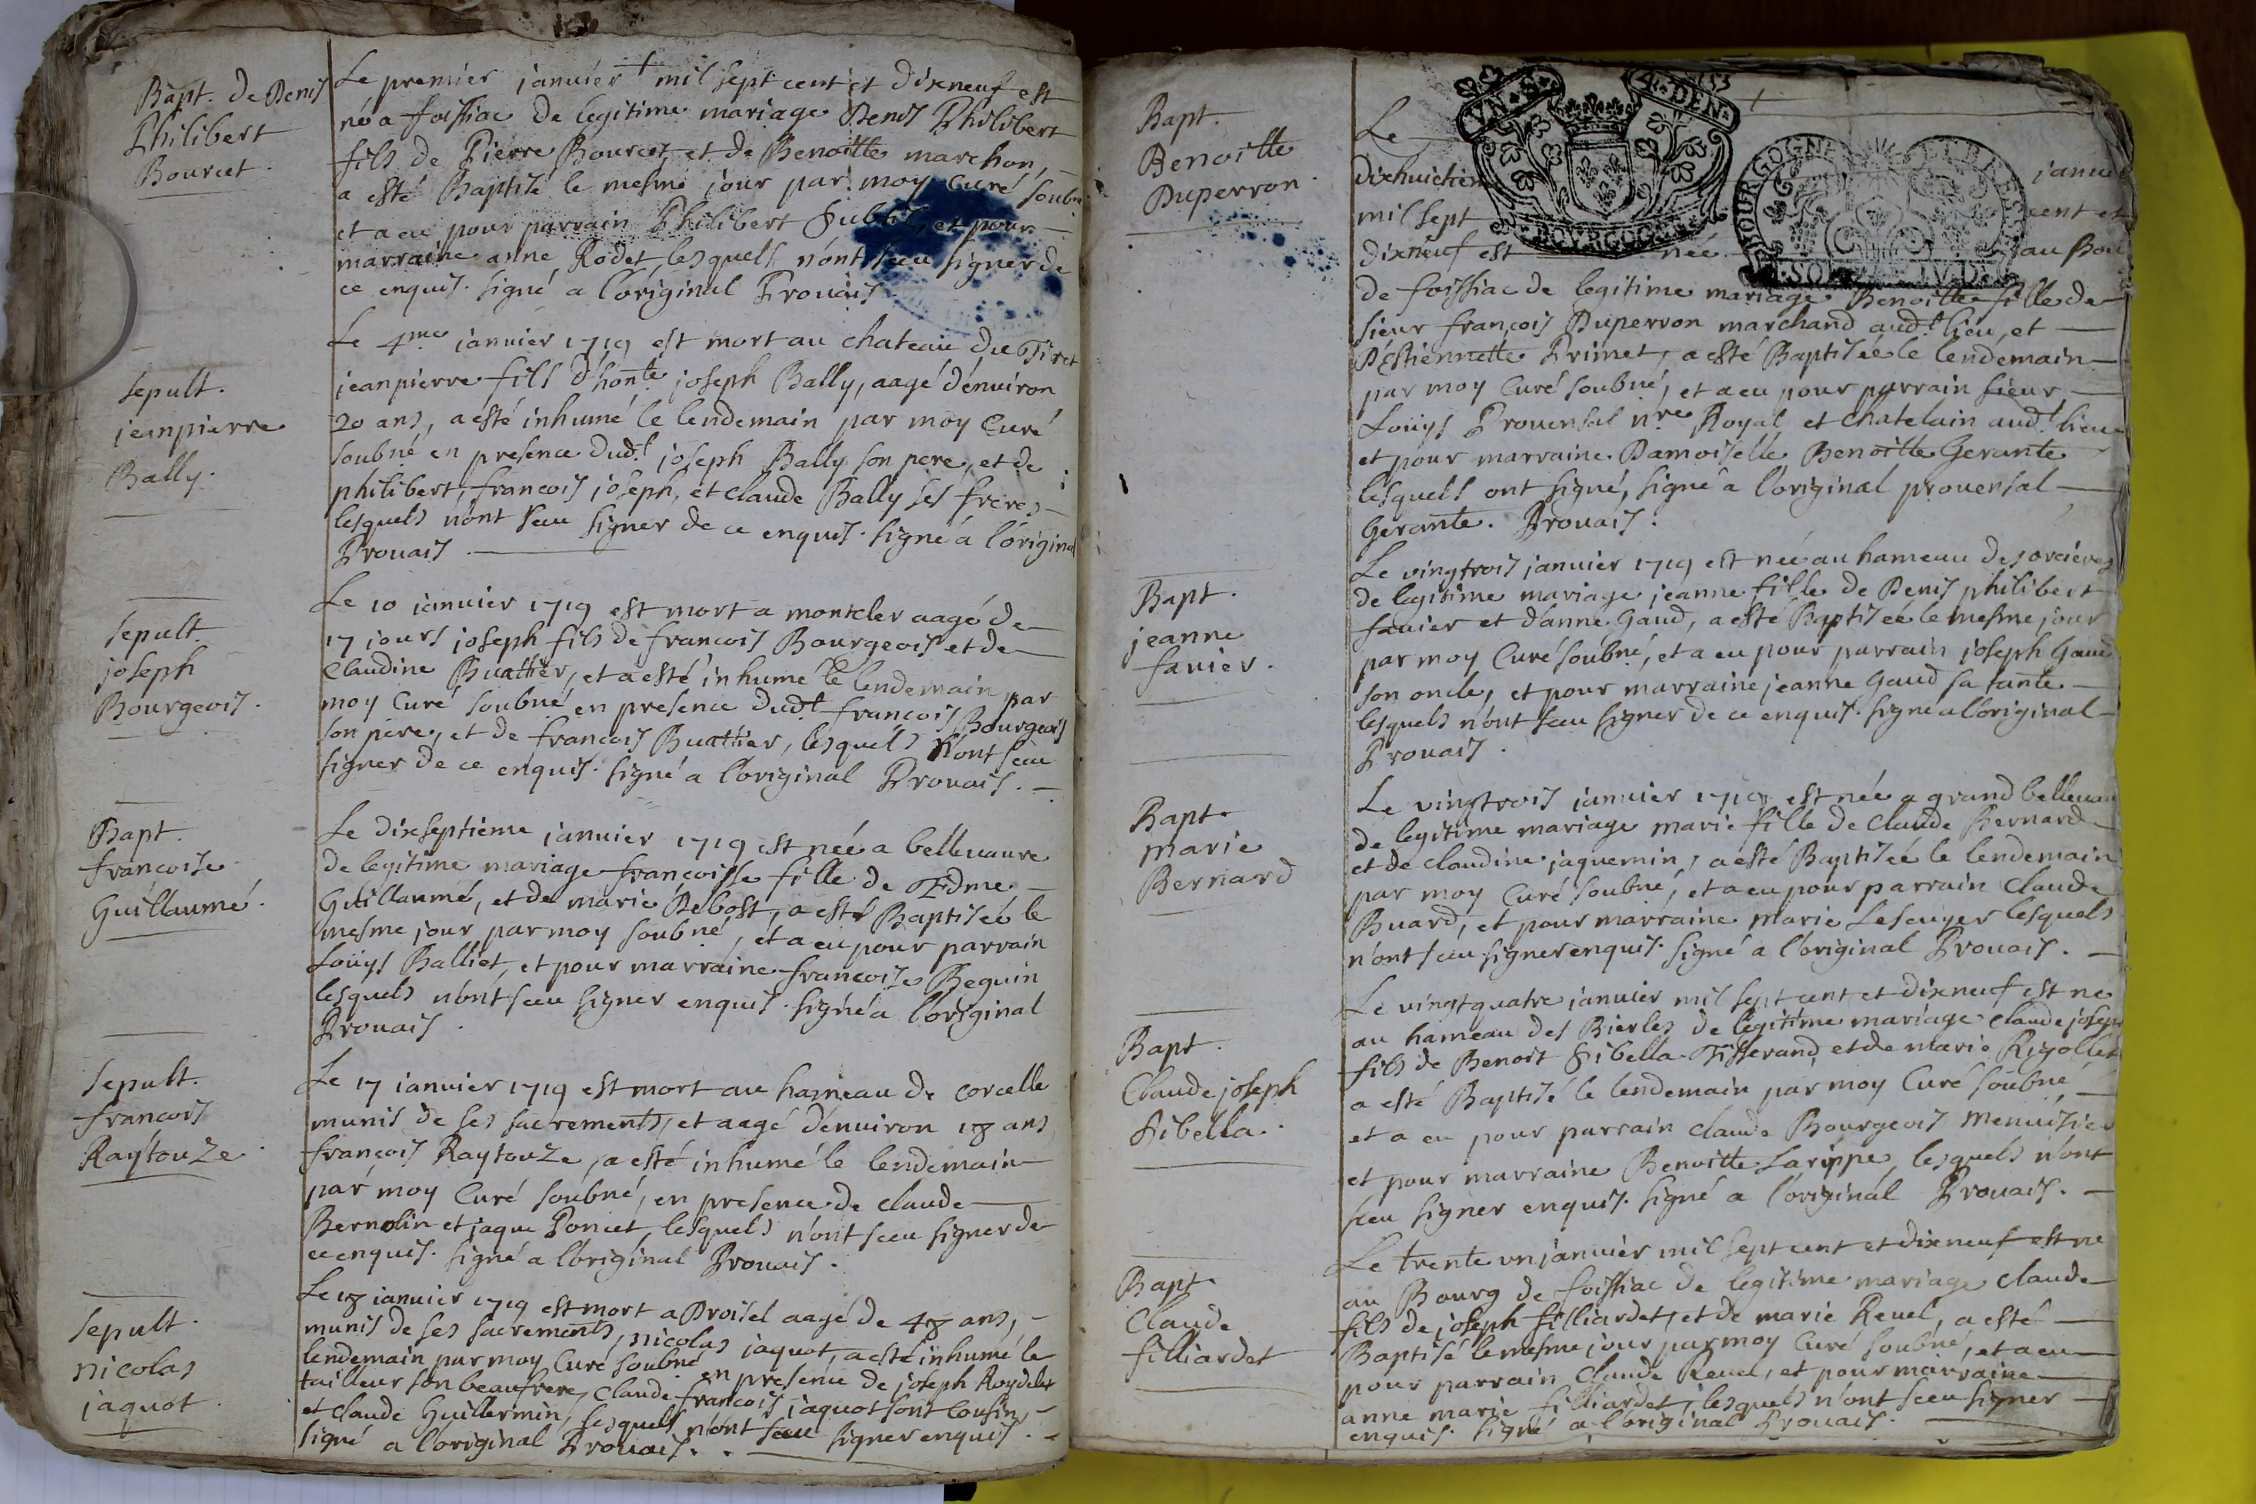 Bapt. de Denis
Philibert
Bourcet.
Le premier janvier mil sept cent et dixneuf est
né a foissiac de legitime mariage Denis Philibert
fils de Pierre Bourcet, et de Benoitte marchon,
a esté Baptisé le mesme jour par moy Curé soubné
et a eu pour parrain Philibert et pour
marraine anne Rodet lesquels n'ont sceu signer de
ce enquis. signé a l'original Prouais
sepult.
jeanpierre
Bally.
Le 4me janvier 1719 est mort au chateau du Tiret
jeanpierre fils d'honte joseph Bally, aagé d'enuiron
20 ans, a esté inhumé le lendemain par moy Curé
soubné en presence dudt joseph Bally son pere, et de
philibert, francois joseph, et claude Bally ses freres
lesquels n'ont sceu signer de ce enquis. signé a l'original
Prouais
sepult.
joseph
Bourgeois.
Le 10 janvier 1719 est mort a montcler aagé de
17 jours joseph fils de francois Bourgeois et de
Claudine Buathier, et a esté inhumé le lendemain par
moy Curé soubné en presence dudt francois Bourgeois
son pere, et de francois Buathier, lesquels n'ont sceu
signer de ce enquis. signé a l'original Prouais.
Bapt.
francoise
Guillaumé.
Le dixseptieme janvier 1719 est née a belleuaure
de legitime mariage francoisse fille de Edme
Guillaumé, et de marie Debost, a esté Baptiseé le
mesme jour par moy soubné, et a eu pour parrain
Loüys Balliet, et pour marraine francoise Beguin
lesquels n'ont sceu signer enquis. signé a l'original
Prouais.
sepult.
francois
Raytouze
Le 17 janvier 1719 est mort au hameau de corcelle
munis de ses sacrements, et aagé d'enuiron 18 ans
françois Raytouze, a esté inhumé le lendemain
par moy Curé soubné, en presence de claude
Bernolin et jaque Poncet, lesquels n'ont sceu signer de
ce enquis. signé a l'original Prouais.
sepult.
nicolas
jaquot.
Le 18 janvier 1719 est mort a Droisel aagé de 48 ans,
munis de ses sacrements, nicolas jaquot, a esté inhumé le
lendemain par moy Curé soubné en presence de joseph Roydelet
tailleur son beaufrere, Claude francois jaquot sont Cousin
et claude Guillermin, lesquels n'ont sceu signer enquis.
signé a l'original Prouais.
Bapt.
Benoitte
Duperron.
VN S 4 DEN
BOURGOG
BOURGOGNE
SOL
Le
dixhuictiem janui
mil sept cent et
dixneuf est née au Bou
de foissiac de legitime mariage Benoitte fille de
sieur françois Duperron marchand audt lieu, et
D'Estiennette Primet, a esté Baptiseé le lendemain
par moy Curé soubné, et a eu pour parrain sieur
Loüys Prouensal nre Royal et chatelain audt lieu
et pour marraine Damoiselle Benoitte Gerante
lesquels ont signé, signé a l'original prouensal
Gerante. Prouais.
Bapt.
jeanne
fauier.
Le vingtrois janvier 1719 est née au hameau des orcieres
de legitime mariage jeanne fille de Denis philibert
fauier et d'anne Gaud, a esté Baptiseé le mesme jour
par moy Curé soubné, et a eu pour parrain joseph Gaud
son oncle, et pour marraine jeanne Gaud sa tante
lesquels n'ont sceu signer de ce enquis. signé a l'original
Prouais.
Bapt.
marie
Bernard
Le vingtrois janvier 1719 est née a grand belleuau
de legitime mariage marie fille de claude Bernard
et de claudine jaquemin, a esté Baptiseé le lendemain
par moy Curé soubné, et a eu pour parrain claude
Buard, et pour marraine marie Lescuyer lesquels
n'ont sceu signer enquis. signé a l'original Prouais.
Bapt.
Claude joseph
Sibella.
Le vingtquatre janvier mil sept cent et dixneuf est né
au hameau des Bierles de legitime mariage claude joseph
fils de Benoit Sibella Tisserand et de marie Rizollet
a esté Baptisé le lendemain par moy Curé soubné
et a eu pour parrain claude Bourgeois menuisier
et pour marraine Benoitte Larippe, lesquels n'ont
sceu signer enquis. signé a l'original Prouais.
Bapt.
Claude
filliardet
Le trente un janvier mil sept cent et dixneuf est né
au Bourg de foissiac de legitime mariage claude
fils de joseph filliardet, et de marie Reuel, a esté
Baptisé le mesme jour par moy Curé soubné, et a eu
pour parrain Claude Reuel, et pour marraine
anne marie filliardet, lesquels n'ont sceu signer
enquis. signé a l'original Prouais.